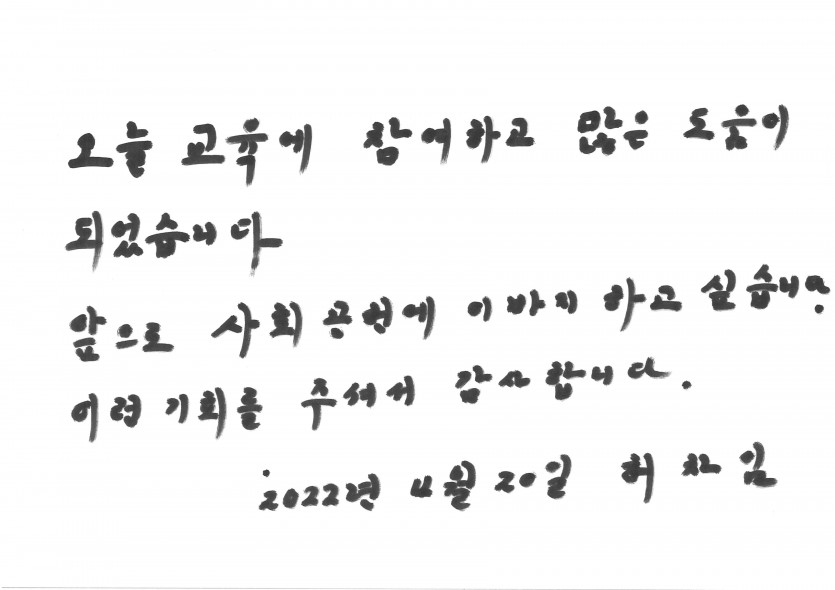 오늘 교육에 참여하고 많은 도움이
되었습니다
앞으로 사회 공헌에 이바지 하고 싶습니다.
이런 기회를 주셔서 감사 합니다.
2022년 4월 20일 허차임